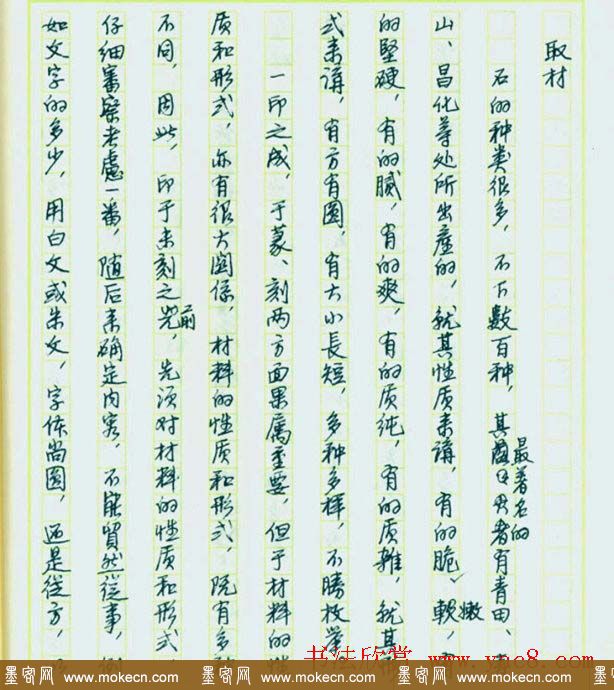 取材
石的种类很多，不下数百种，其最著名的者有青田、
山、昌化等处所出产的，就其性质来講，有的脆、嫩軟，
的堅硬，有的腻，有的爽，有的质纯，有的质雜，就其
式来講，有方有圆，有大小長短，多种多样，不勝枚举
一印之成，于篆、刻两方面果属重要，但于材料的
质和形式，亦有很大関係，材料的性质和形式，既有多
不同，因此，印于未刻之前，先须对材料的性质和形式，
仔细審察考慮一番，随后来确定内容，不能貿然從事，
如文字的多少，用白文或朱文，字体尚圆，还是從方，
书法欣赏 www.yac8.com
墨客网 www.mokecn.com 墨客网 www.mokecn.com 墨客网 www.mokecn.com